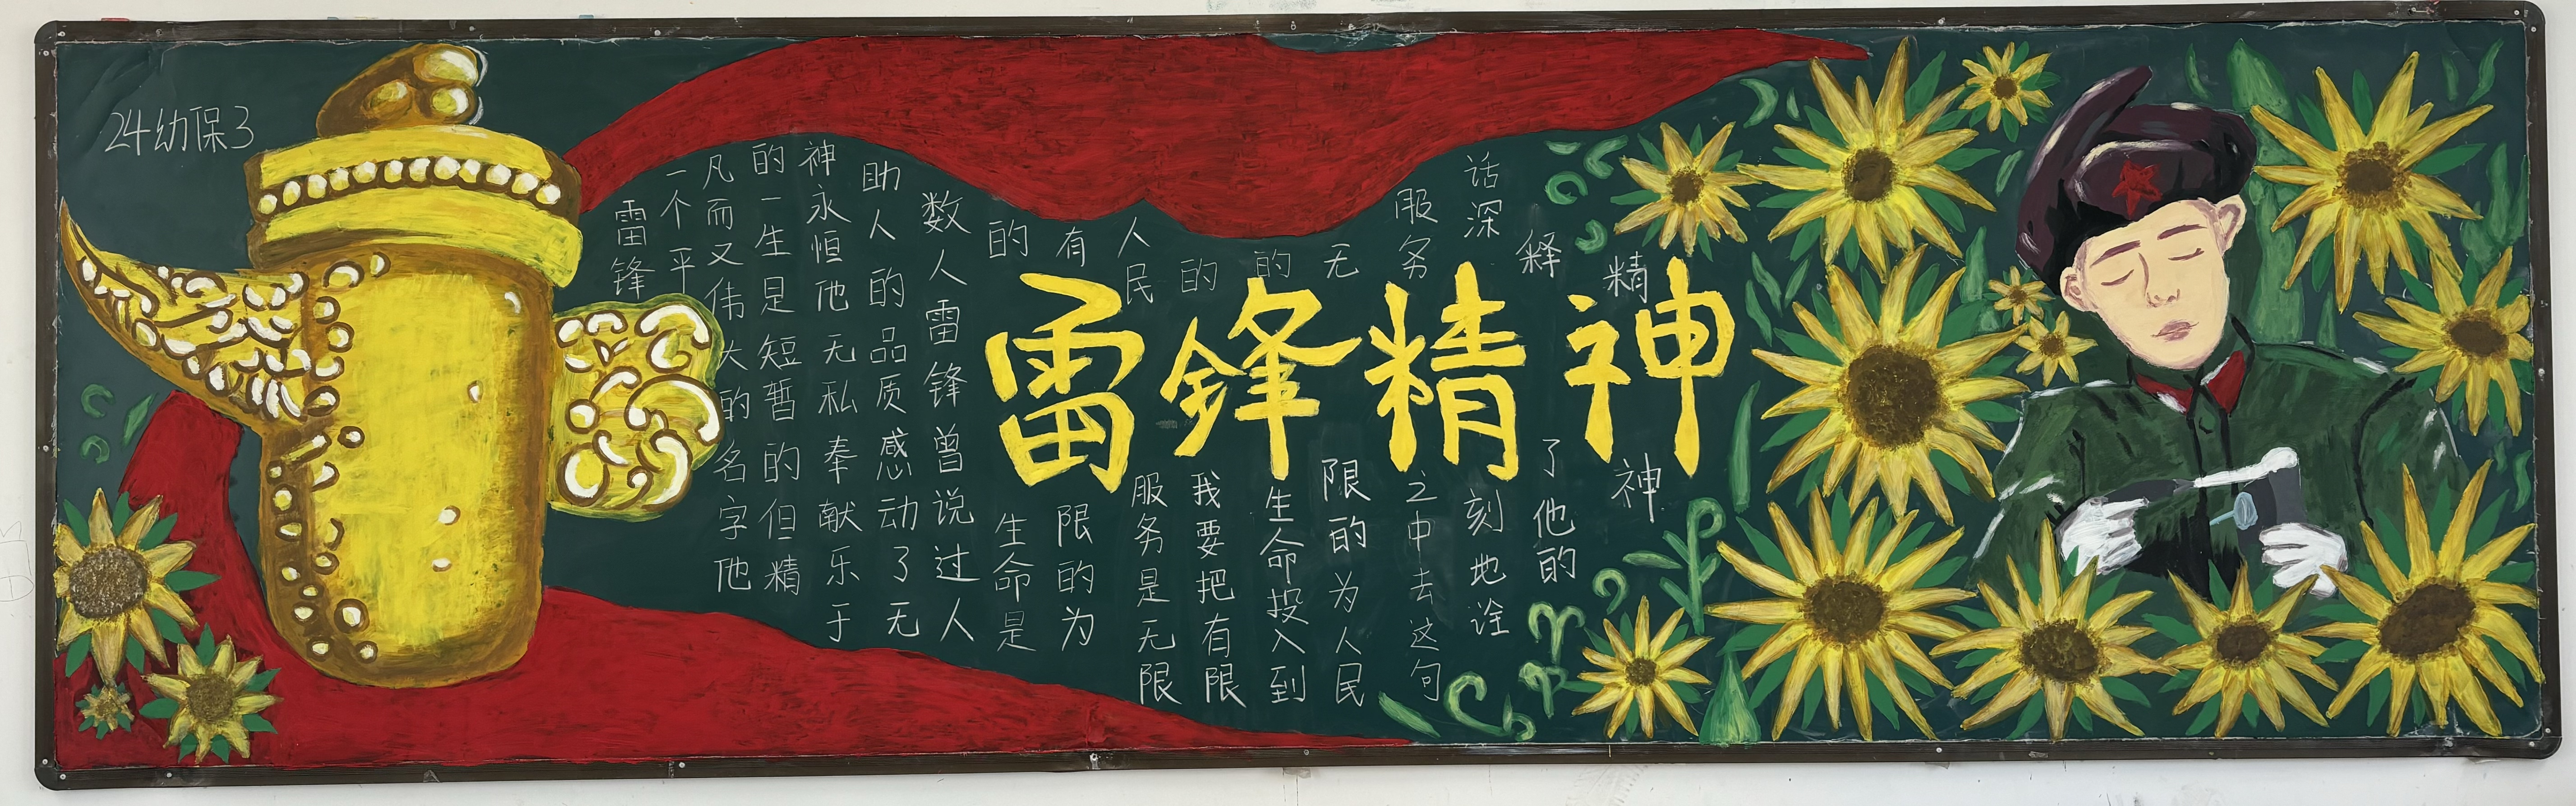 24幼保3
雷锋精神
雷锋
一个平
凡而又伟大的名字他
的一生是短暂的但精
神永恒他无私奉献乐于
助人的品质感动了无
数人雷锋曾说过人
的生命是
有限的为
人民服务是无限
的我要把有限
的生命投入到
无限的为人民
服务之中去这句
话深刻地诠
释了他的
精神